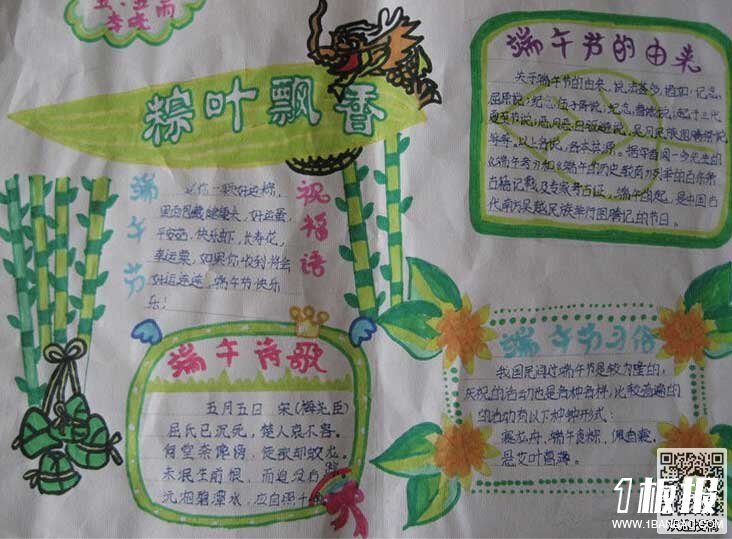 五·五雨
李晓
粽叶飘香
端午节
祝福语
送你一颗好运粽,
里面包藏健康长、好运蛋,
平安西,快乐虾,长寿花,
幸运栗,如果你收到将会
好运连连,端午节快乐
乐!
端午诗歌
五月五日 宋(梅尧臣)
屈氏已沉死,楚人哀不容。
何尝奈谗谤,徒欲却蛟龙。
未泯生前恨,而追没后
沅湘碧潭水,应自照千
端午节的由来
关于端午节的由来,说法甚多,诸如:纪念
屈原说;纪念伍子胥说;纪念曹娥说;起于三代
夏至节说;恶月恶日驱避说,吴月民族图腾祭说
等等。以上各说,各本其源。据学者闻一多先生的
《端午考》和《端午的历史教育》列举的百余条
古籍记载及专家考古证,端午的起,是中国古
代南方吴越民族举行图腾记的节日。
端午节习俗
我国民间过端午节是较为隆的,
庆祝的活动也是各种各样,比较普遍的
的活动有以下种种形式:
赛龙舟,端午食粽,佩香囊,
悬艾叶菖蒲。
1板报
WWW.1BANBAO.COM
欢迎投稿